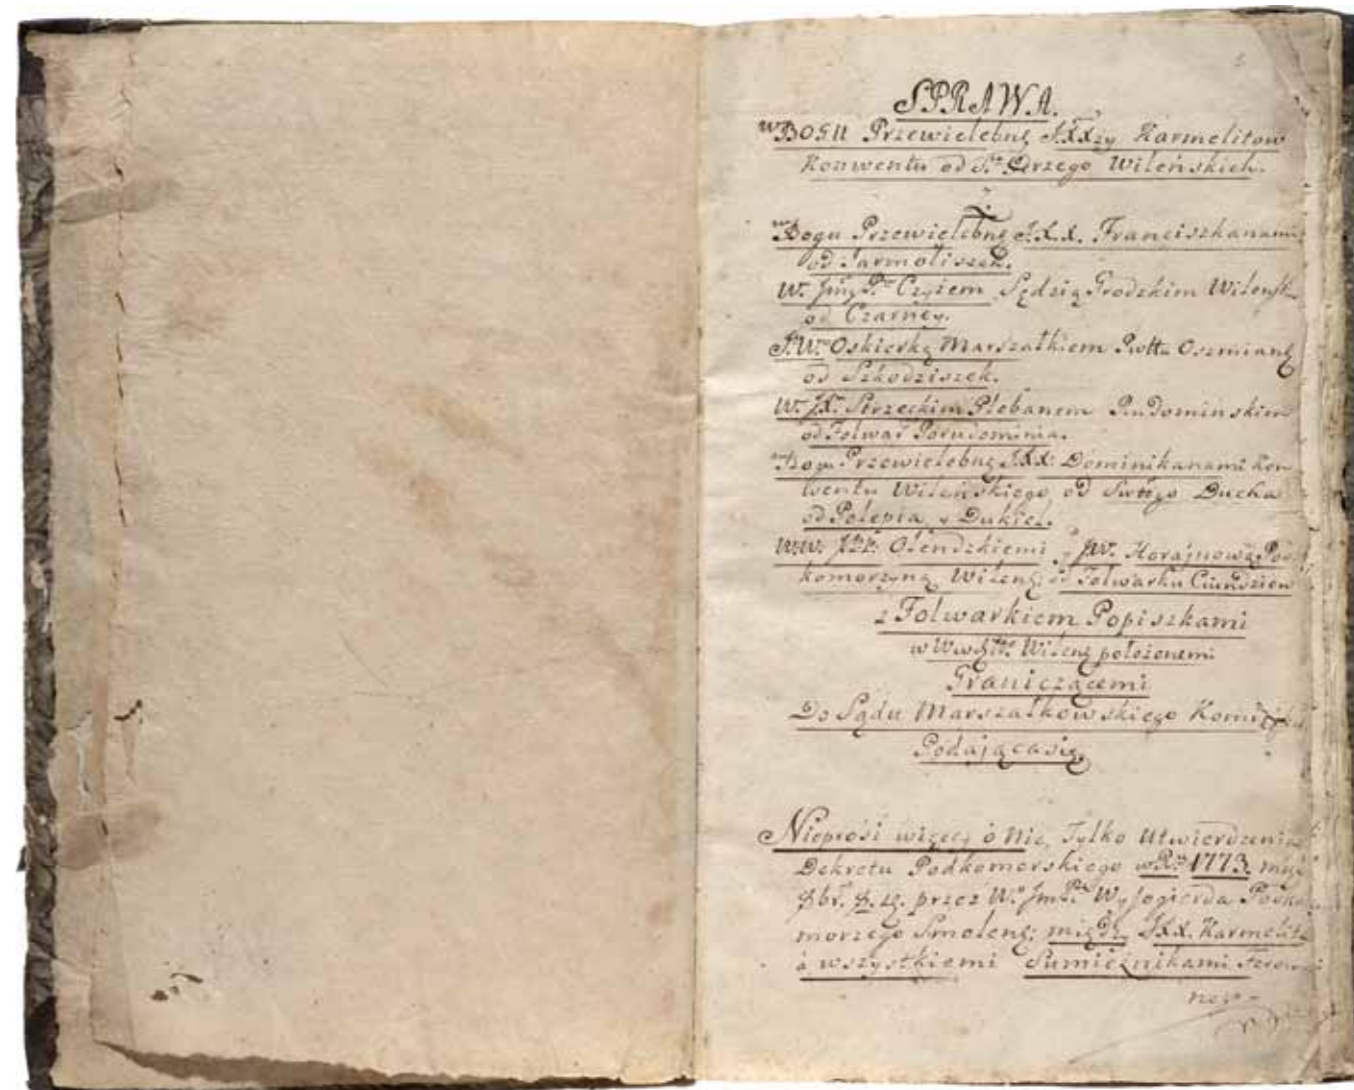 SPRAWA.
w BOGU Przewielebnę JXXzy Karmelitow
Konwentu od Sº Jerzego Wileńskich.
Z.
w Bogu Przewielebnę J.X.X. Franciszkanami
od Jarmoliszek.
W. Jmę Pº Czyżem Sędzią Grodzkim Wileńsk
od Czarney.
J.W. Oskierką Marszałkiem Pwttu Oszmianę
od Szkodziszek.
W. JX. Strzeckim Plebanem Rudomińskim
od Folwar Porudominia.
w Bogu Przewielebnę JXX: Dominikanami Kon
wentu Wileńskiego od Swttgo Ducha
od Polepia y Dukiel.
W.W. Olendzkiemi y JW. Horajnową Pod
komorzyną Wileng: od Folwarku Ciundziow
z Folwarkiem Popiszkami
w Wileng położonemi
Graniczącemi
Do Sądu Marszałkowskiego
Podającasię
Nieprosi więcey o nic, Tylko Utwierdzenia
Dekretu Podkomorskiego w R. 1773
przez Wº Jm Pª Podko
morzego Smoleng: między JXX. Karmelita
a wszystkiemi Sumieżnikami